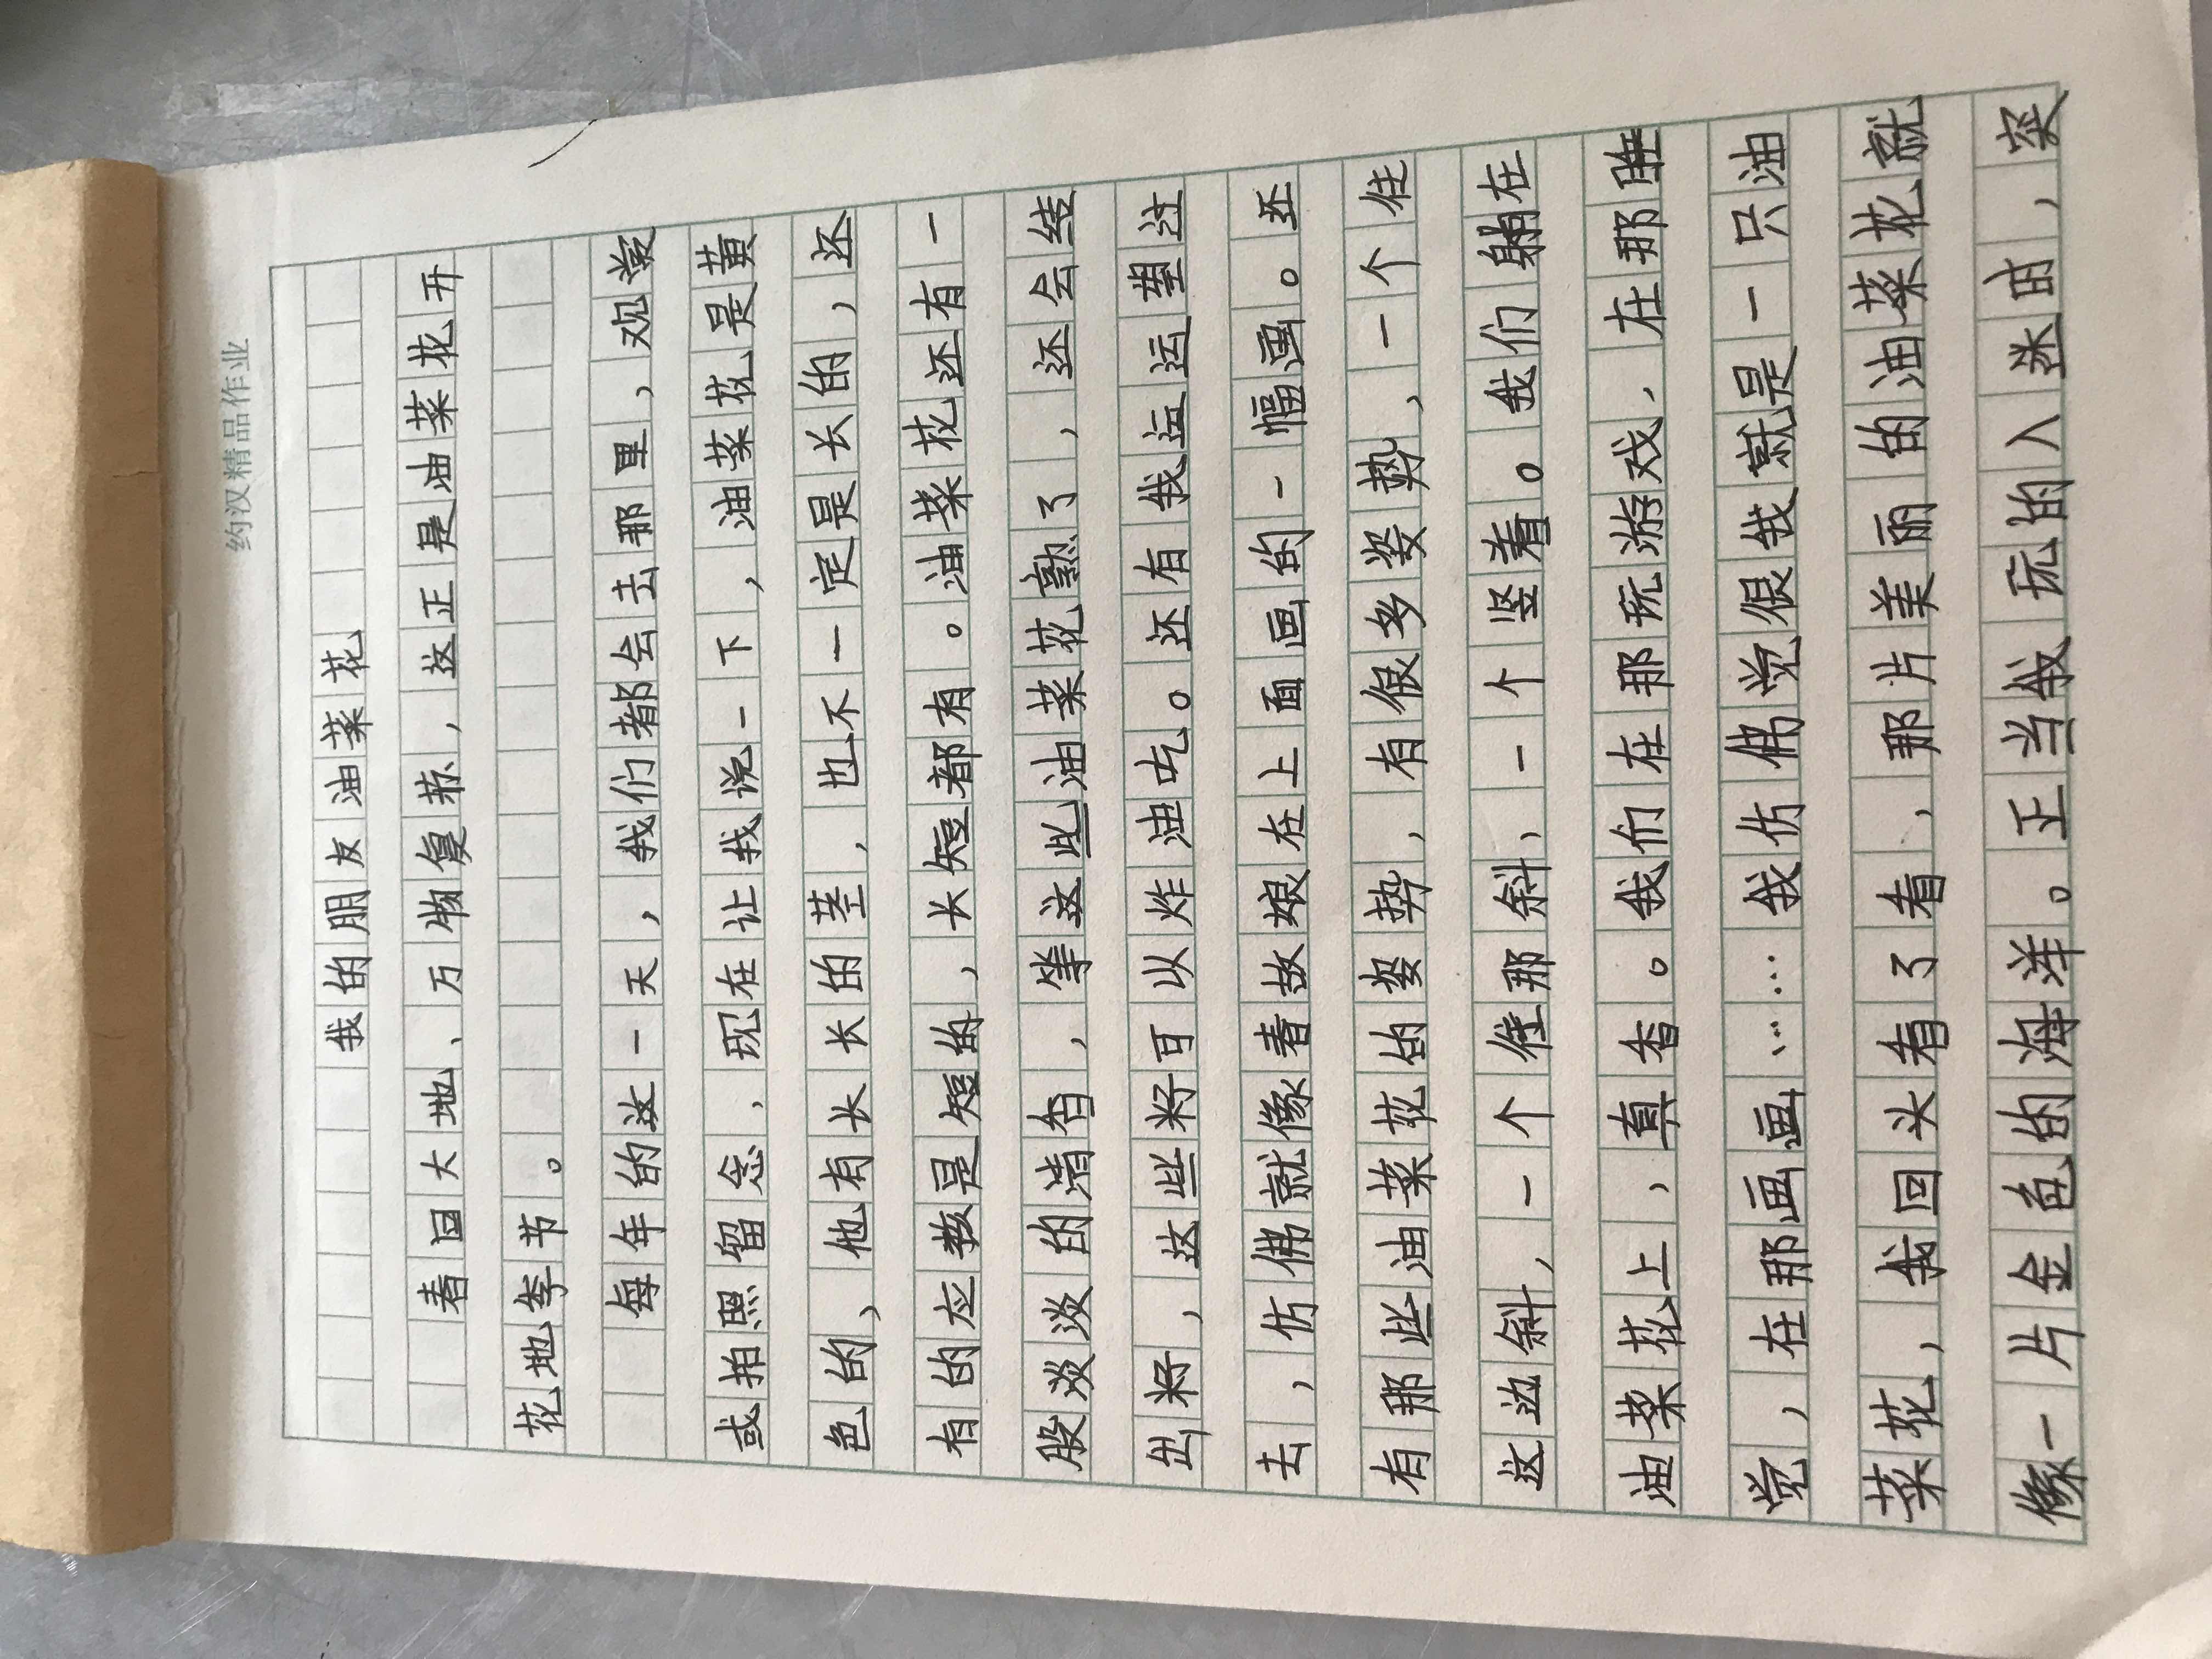 约汉精品作业
我的朋友油菜花
春回大地、万物复苏，这正是油菜花开
花地季节。
每年的这一天，我们都会去那里，观赏
或拍照留念，现在让我说一下，油菜花是黄
色的、他有长长的茎，也不一定是长的，还
有的应该是短的，长短都有。油菜花还有一
股淡淡的清香，等这些油菜花熟了，还会结
出籽，这些籽可以炸油吃。还有我远远望过
去，仿佛就像春故娘在上面画的一幅画。还
有那些油菜花的姿势，有很多姿势，一个住
这边斜，一个住那斜、一个竖着。我们躺在
油菜花上，真香。我们在那玩游戏，在那睡
觉，在那画画……我仿佛觉很我就是一只油
菜花，我回头看了看，那片美丽的油菜花就
像一片金色的海洋。正当我玩的入迷时，突